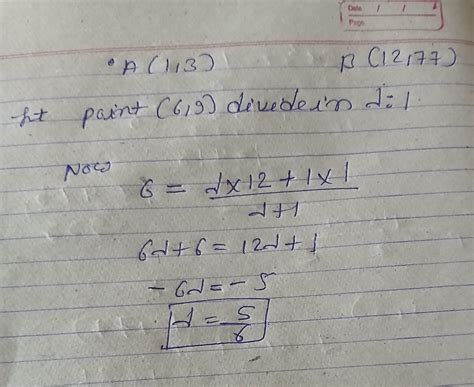 Date / /
Page
A (1,3) B (12,77)
let point (6,9) divide in λ:1
Now
6 = λ×12 + 1×1
λ+1
6λ+6 = 12λ+1
-6λ = -5
λ = 5
6